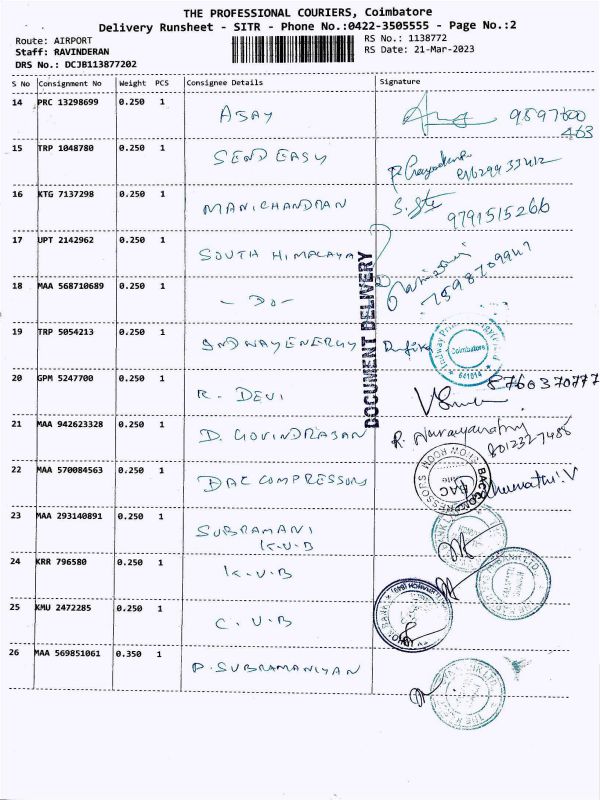 THE PROFESSIONAL COURIERS, Coimbatore
Delivery Runsheet - SITR - Phone No.:0422-3505555 - Page No.:2
Route: AIRPORT
RS No.: 1138772
Staff: RAVINDERAN
RS Date: 21-Mar-2023
DRS No.: DCJB113877202
S No Consignment No Weight PCS Consignee Details Signature
14 PRC 13298699 0.250 1 AJAY 9597600
463
15 TRP 1048780 0.250 1 SEND EASY
16 KTG 7137298 0.250 1 MANICHANDRAN 9791515266
17 UPT 2142962 0.250 1 SOUTH HIMALAYA
18 MAA 568710689 0.250 1 - DO - 7598709947
DOCUMENT DELIVERY
19 TRP 5054213 0.250 1 INDWAY ENERGY
Coimbatore
641014
20 GPM 5247700 0.250 1 R. DEVI 8760370777
21 MAA 942623328 0.250 1 D. GOVINDRAJAN R. Narayanan
8012327488
22 MAA 570084563 0.250 1 DAC COMPRESSORS
23 MAA 293140891 0.250 1 SUBRAMANI
K.V.B
24 KRR 796580 0.250 1 K.V.B
25 KMU 2472285 0.250 1 C.U.B
26 MAA 569851061 0.350 1 P. SUBRAMANIYAN